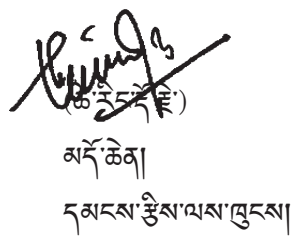 (ཚེ་རིང་རྡོ་རྗེ་)
མདོ་ཆེན།
དམངས་རྩིས་ལས་ཁུངས།